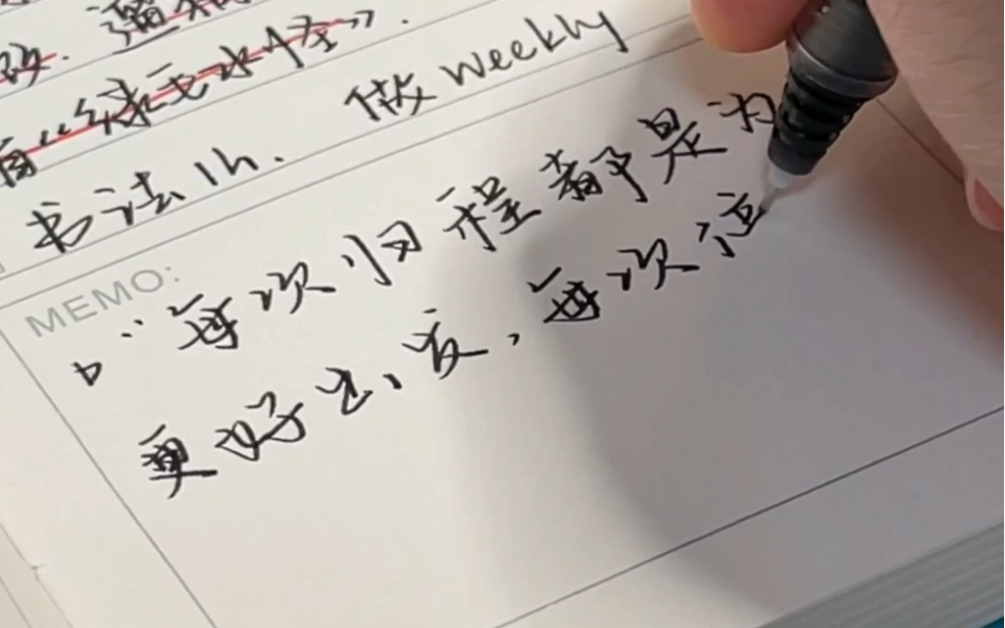 有“绿毛水怪”.
书法1h. 做weekly
MEMO:
“每次归程都是为
更好出发,每次